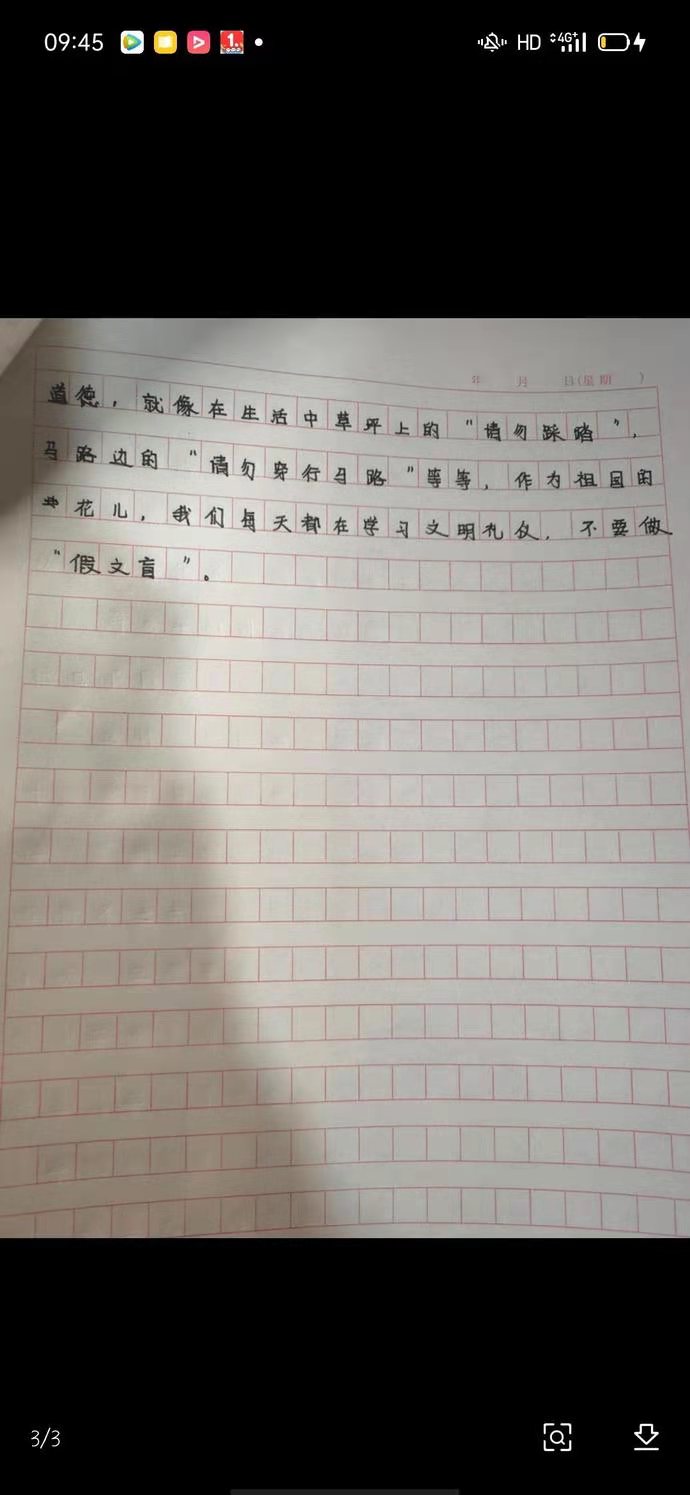 09:45
HD 4G+
年 月 日(星期 )
道德，就像在生活中草坪上的“请勿踩踏”，
马路边的“请勿穿行马路”等等，作为祖国的
花儿，我们每天都在学习文明礼仪，不要做
“假文盲”。
3/3